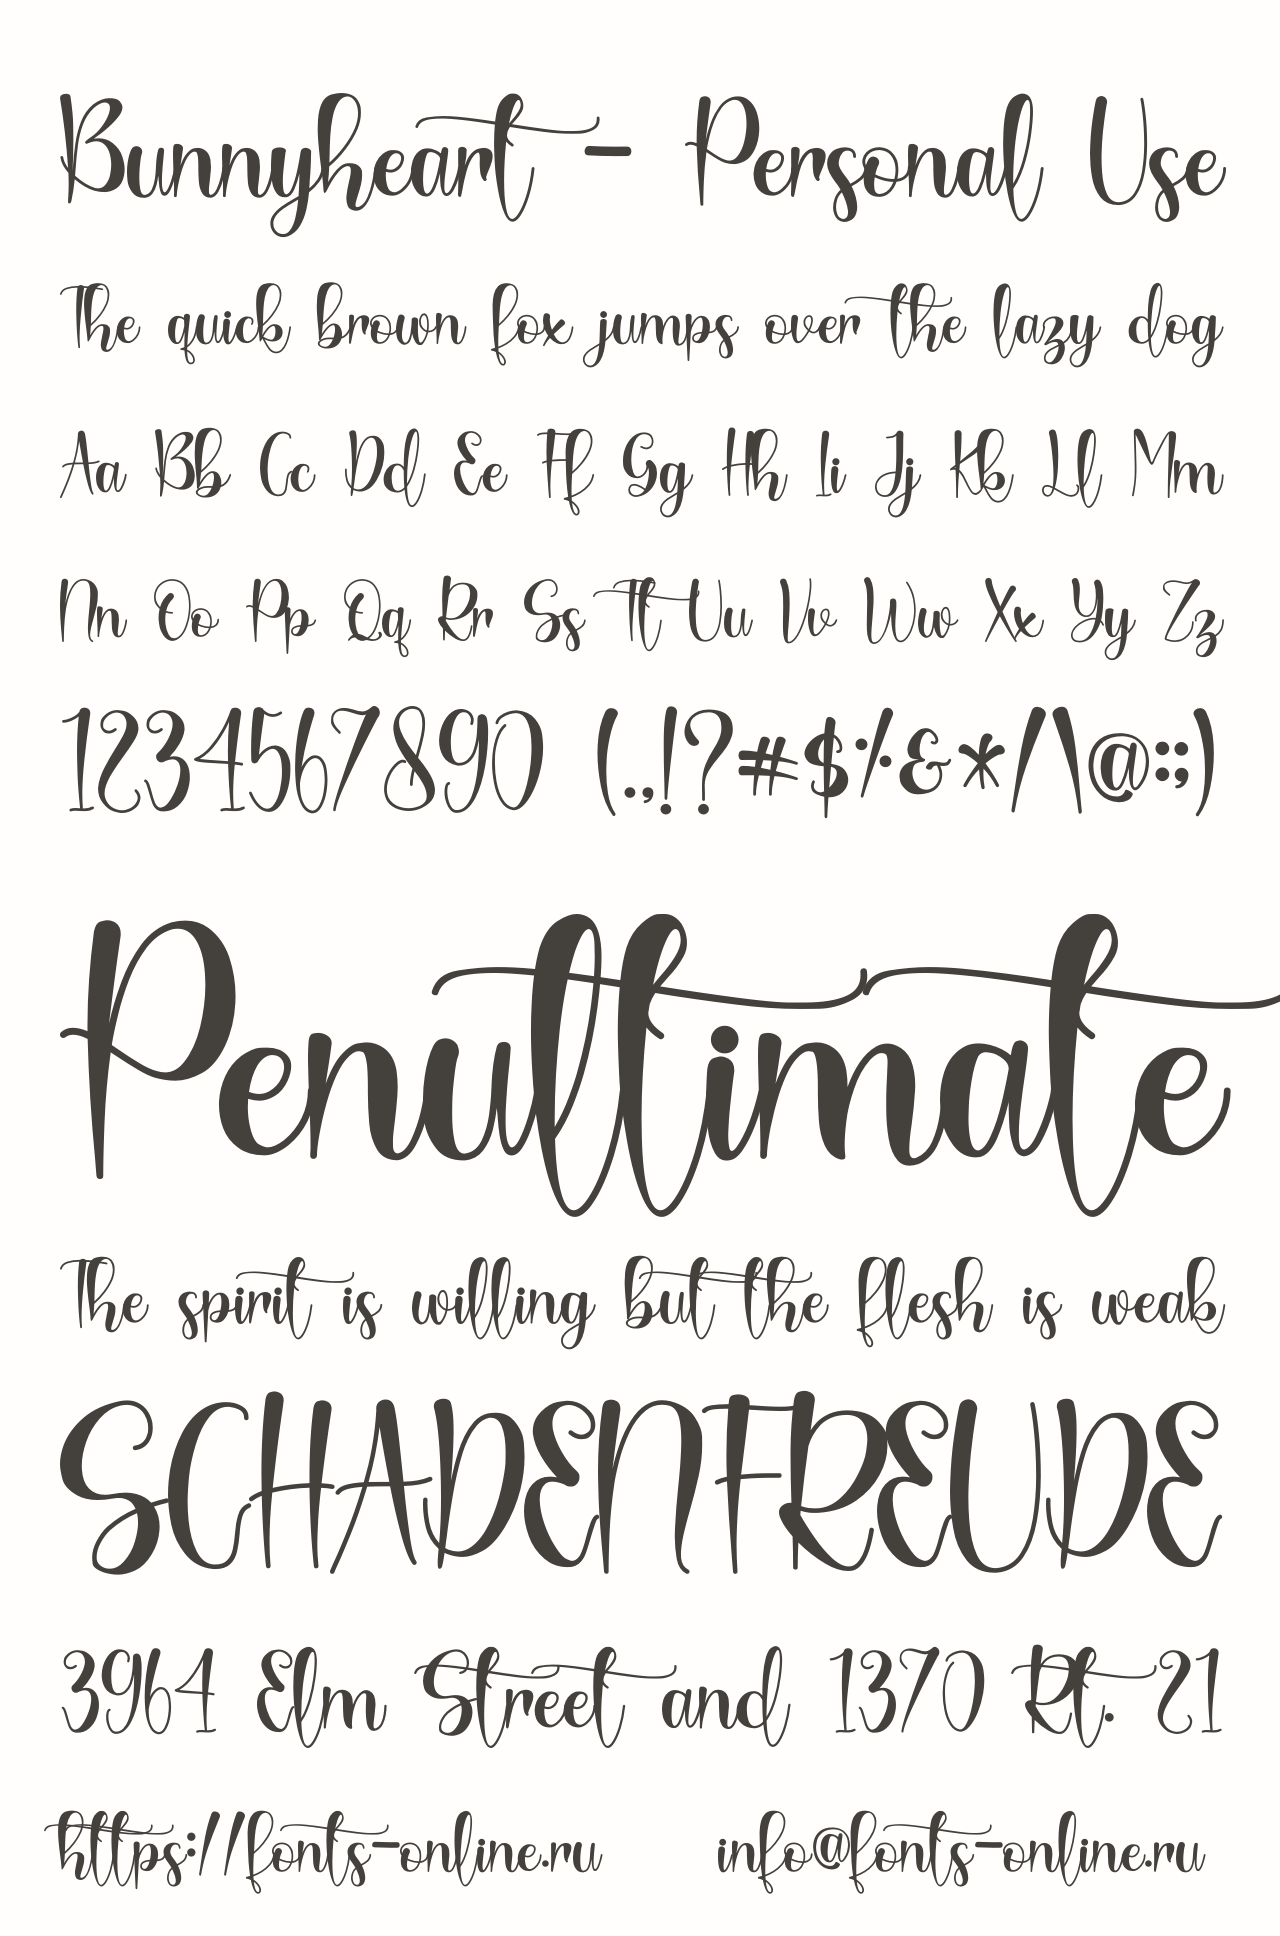 Bunnyheart - Personal Use
The quick brown fox jumps over the lazy dog
Aa Bb Cc Dd Ee Ff Gg Hh Ii Jj Kk Ll Mm
Nn Oo Pp Qq Rr Ss Tt Uu Vv Ww Xx Yy Zz
1234567890 (.,!?#$%&*/\@:;)
Penultimate
The spirit is willing but the flesh is weak
SCHADENFREUDE
3964 Elm Street and 1370 Rt. 21
https://fonts-online.ru info@fonts-online.ru